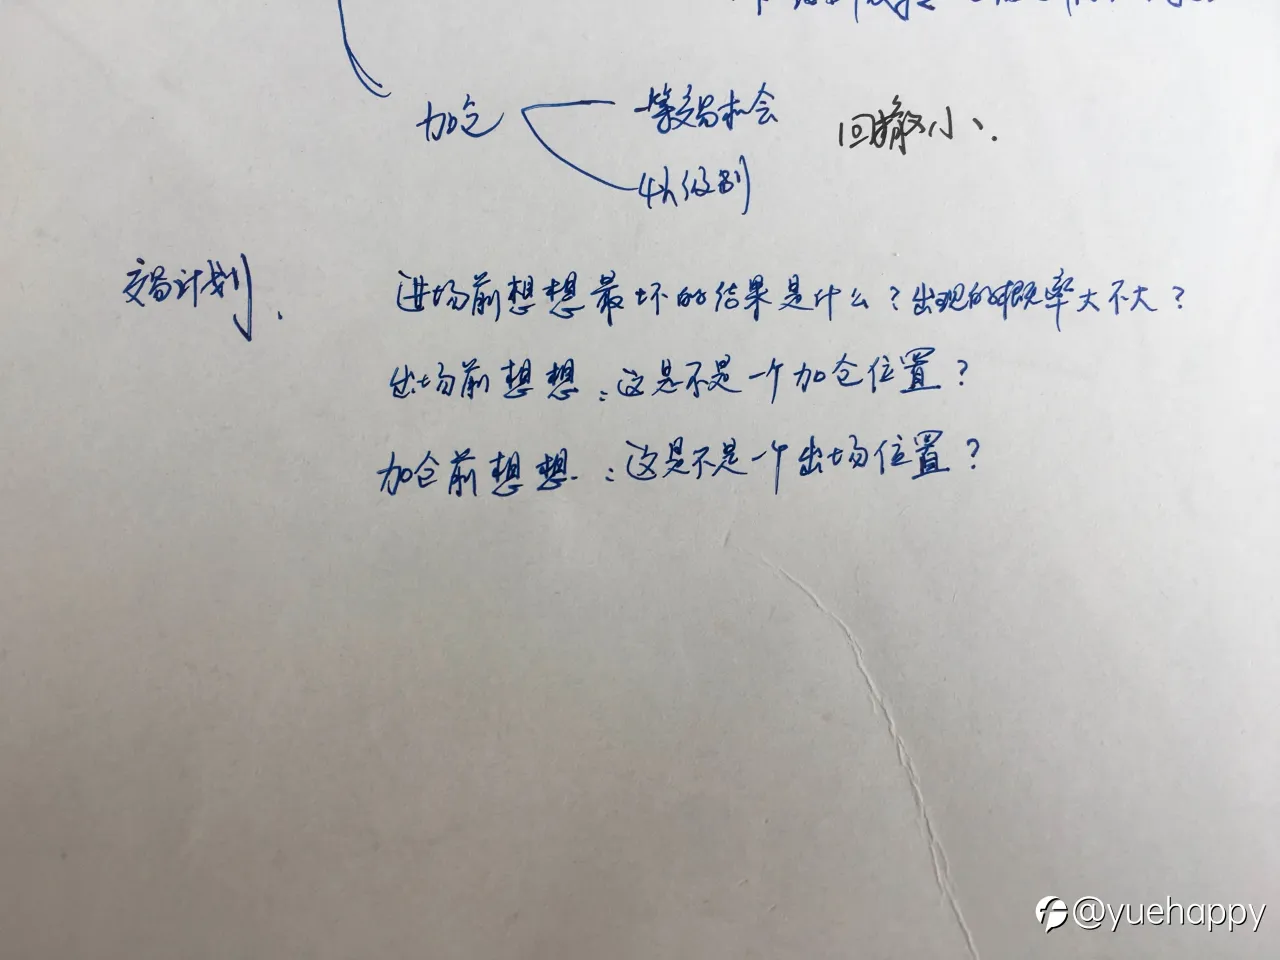 加仓 一等交易机会 回撤小、
4h级别
交易计划、 进场前想想最坏的结果是什么？出现的概率大不大？
出场前想想：这是不是一个加仓位置？
加仓前想想：这是不是一个出场位置？
@yuehappy